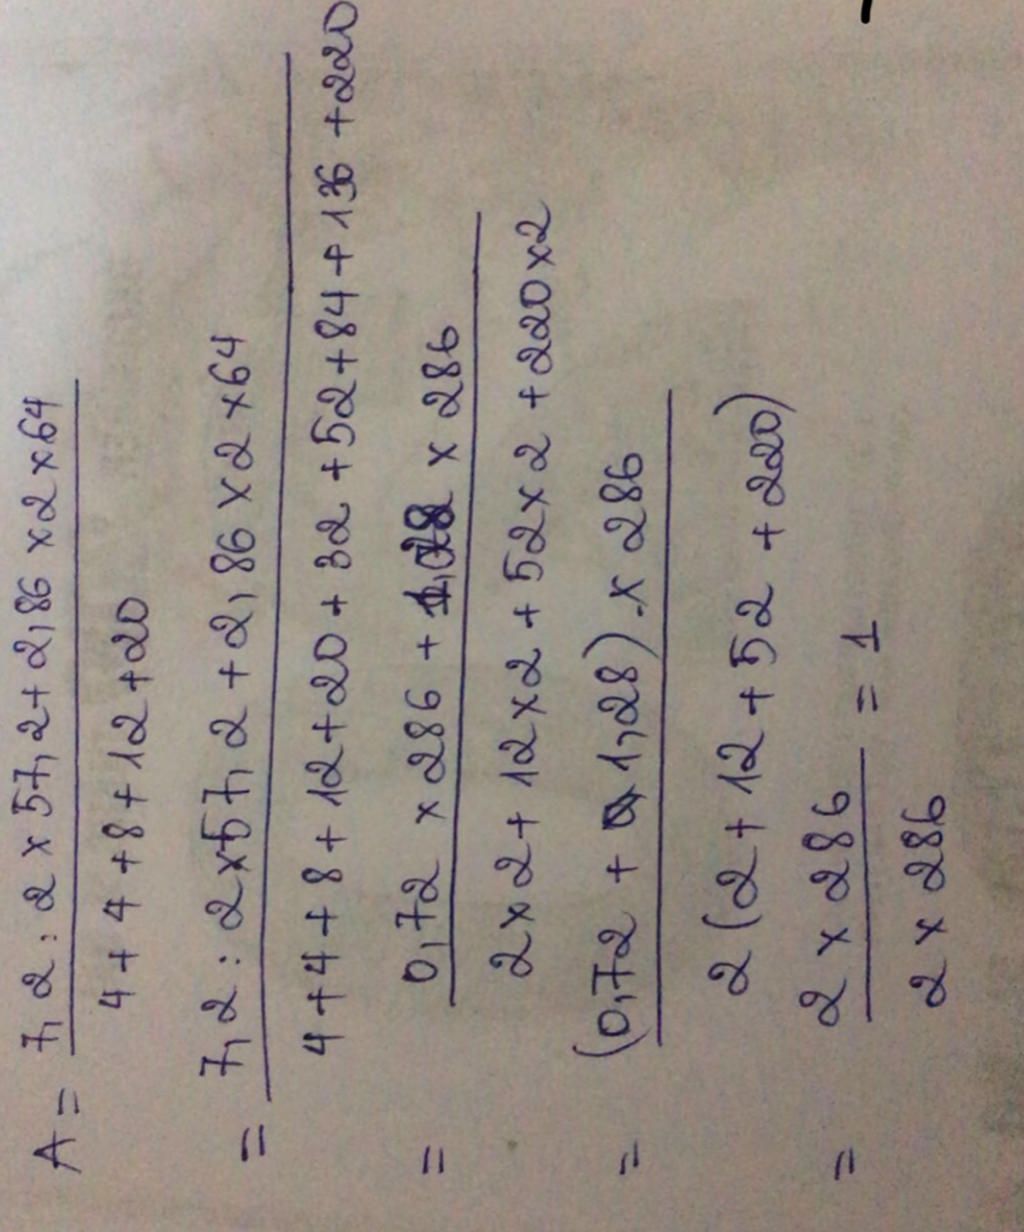 A = 7,2 : 2 x 57,2 + 2,86 x 2 x 64
4 + 4 + 8 + 12 + 20
= 7,2 : 2 x 57,2 + 2,86 x 2 x 64
4 + 4 + 8 + 12 + 20 + 32 + 52 + 84 + 136 + 220
= 0,72 x 286 + 1,28 x 286
2 x 2 + 12 x 2 + 52 x 2 + 220 x 2
= (0,72 + 1,28) . x 286
2 (2 + 12 + 52 + 220)
= 2 x 286 = 1
2 x 286